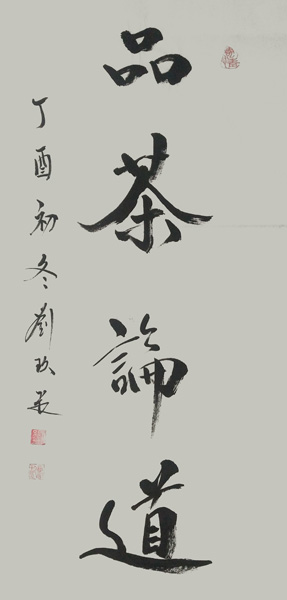 品茶論道
丁酉初冬劉玖